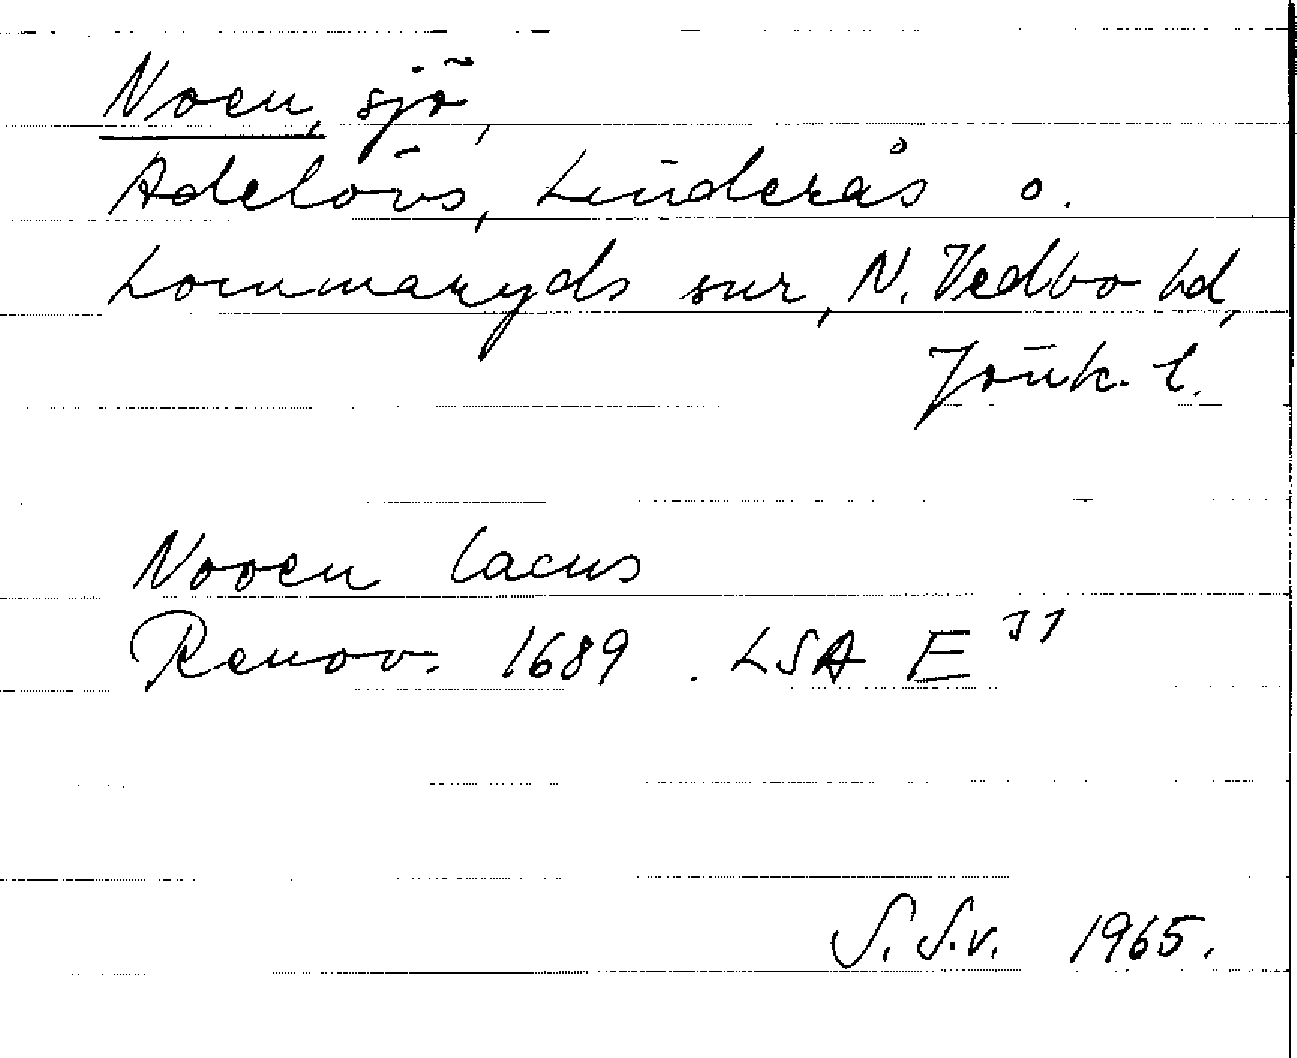 Noen, sjö,
Adelövs, Linderås o.
Lommaryds snr, N. Vedbo hd,
Jönk. l.
Nooen lacus
Renov. 1689. LSA E 71
S. S.v. 1965.